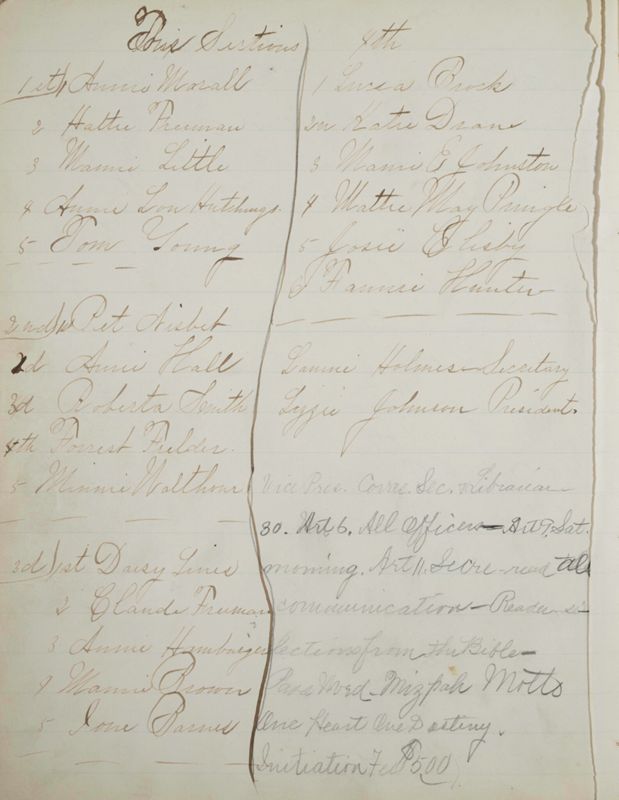 Sections
1st) Annie Morall
2 Hattie Freeman
3 Mamie Little
4 Annie Lou Hutchings.
5 Tom Young
2nd) Pet Nisbet
2d Annie Hall
3d Roberta Smith
4th Forrest Fielder.
5 Minnie Walthour
3d) 1st Daisy Lines
2 Claude Freeman
3 Annie Hamburger
4 Mamie Brown
5 Ione Barnes
4th
1 Lucia Brock
2n Katie Drane
3 Mamie E Johnston
4 Mattie May Pringle
5 Josie Clisby
6 Fannie Hunter
Holmes Secretary
Lizzie Johnson President.
Vice Pres. Corres. Sec. & Librarian
30. Art 6. All Officers - Art 9. Sat.
morning. Art 11. Secre - read all
communication - Reads se-
lections from the Bible -
Pass Word - Mizpah Motto
One Heart One Destiny.
Initiation Fee $5.00